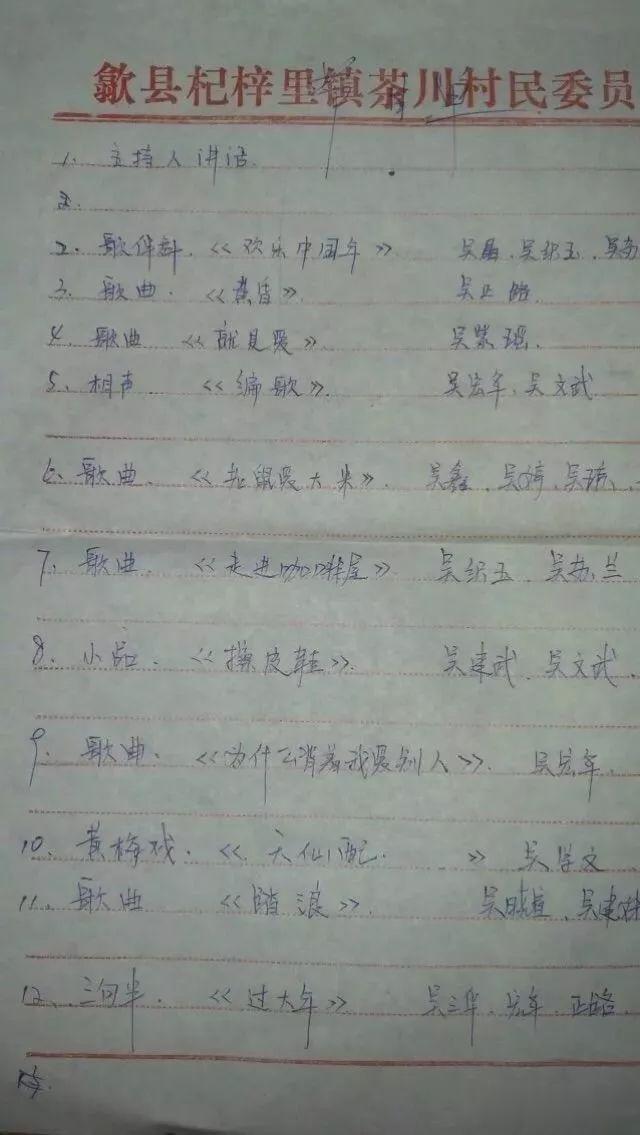 歙县杞梓里镇茶川村民委员
1. 主持人讲话.
2. 歌伴舞. 《欢乐中国年》 吴 吴织玉、吴苏
3. 歌曲. 《黄昏》. 吴正皓.
4. 歌曲 《就是爱》 吴紫瑶.
5、相声 《编歌》. 吴宏年、吴文武
6、歌曲. 《老鼠爱大米》. 吴鑫、吴婷、吴
7、歌曲. 《走进咖啡屋》 吴织玉、吴苏兰
8. 小品. 《擦皮鞋》. 吴建武、吴文武、
9、歌曲. 《为什么背着我爱别人》. 吴宏年.
10、黄梅戏. 《天仙配. 》 吴学文
11、歌曲 《踏浪》. 吴 、吴建
12、三句半. 《过大年》 吴三华、宏年、正皓.